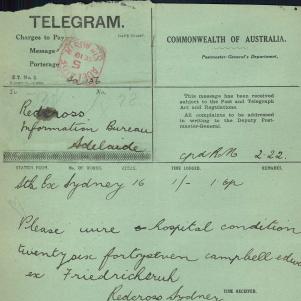 TELEGRAM.
Charges to Pay
Message
Porterage
COMMONWEALTH OF AUSTRALIA.
Postmaster-General's Department.
This message has been received
subject to the Post and Telegraph
Act and Regulations.
All complaints to be addressed
in writing to the Deputy Post-
master-General.
Redcross
Information Bureau
Adelaide
2.22
STATION FROM. No. OF WORDS. TIME LODGED. REMARKS.
Sth Ex Sydney 16 1/- 1 6p
Please wire hospital condition
twentysix fortyseven campbell edw
ex Friedrichsruh
Redcross Sydney
TIME RECEIVED.